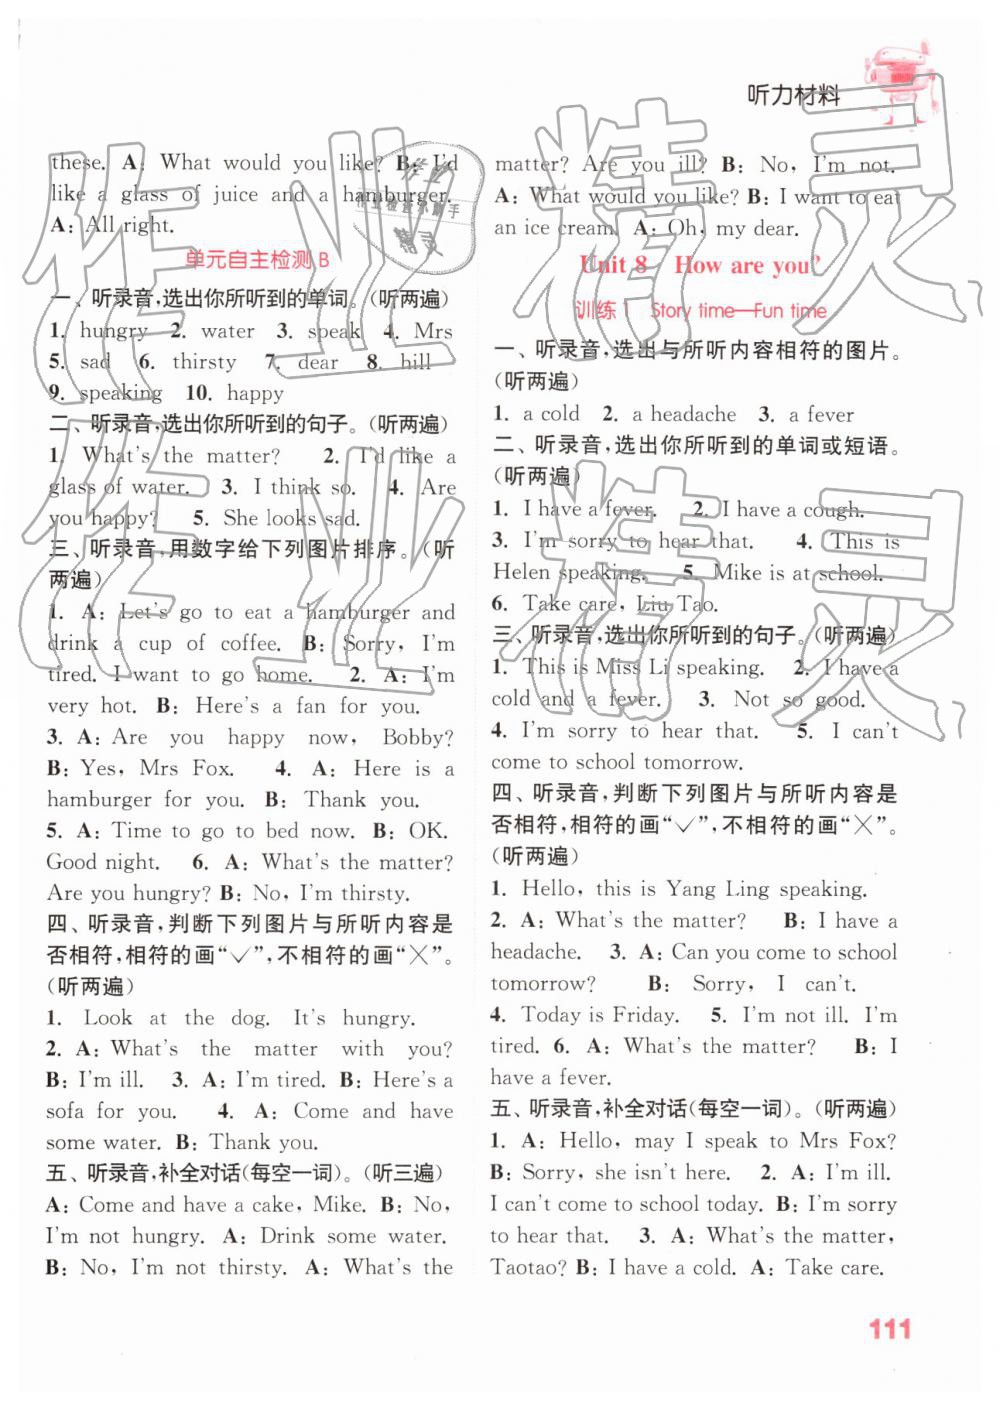 听力材料
these. A: What would you like? B: I'd
like a glass of juice and a hamburger.
A: All right.
单元自主检测 B
一、听录音,选出你所听到的单词。(听两遍)
1. hungry 2. water 3. speak 4. Mrs
5. sad 6. thirsty 7. dear 8. hill
9. speaking 10. happy
二、听录音,选出你所听到的句子。(听两遍)
1. What's the matter? 2. I'd like a
glass of water. 3. I think so. 4. Are
you happy? 5. She looks sad.
三、听录音,用数字给下列图片排序。(听
两遍)
1. A: Let's go to eat a hamburger and
drink a cup of coffee. B: Sorry, I'm
tired. I want to go home. 2. A: I'm
very hot. B: Here's a fan for you.
3. A: Are you happy now, Bobby?
B: Yes, Mrs Fox. 4. A: Here is a
hamburger for you. B: Thank you.
5. A: Time to go to bed now. B: OK.
Good night. 6. A: What's the matter?
Are you hungry? B: No, I'm thirsty.
四、听录音,判断下列图片与所听内容是
否相符,相符的画“√”,不相符的画“×”。
(听两遍)
1. Look at the dog. It's hungry.
2. A: What's the matter with you?
B: I'm ill. 3. A: I'm tired. B: Here's a
sofa for you. 4. A: Come and have
some water. B: Thank you.
五、听录音,补全对话(每空一词)。(听三遍)
A: Come and have a cake, Mike. B: No,
I'm not hungry. A: Drink some water.
B: No, I'm not thirsty. A: What's the
matter? Are you ill? B: No, I'm not.
A: What would you like? B: I want to eat
an ice cream. A: Oh, my dear.
Unit 8 How are you?
训练 1 Story time—Fun time
一、听录音,选出与所听内容相符的图片。
(听两遍)
1. a cold 2. a headache 3. a fever
二、听录音,选出你所听到的单词或短语。
(听两遍)
1. I have a fever. 2. I have a cough.
3. I'm sorry to hear that. 4. This is
Helen speaking. 5. Mike is at school.
6. Take care, Liu Tao.
三、听录音,选出你所听到的句子。(听两遍)
1. This is Miss Li speaking. 2. I have a
cold and a fever. 3. Not so good.
4. I'm sorry to hear that. 5. I can't
come to school tomorrow.
四、听录音,判断下列图片与所听内容是
否相符,相符的画“√”,不相符的画“×”。
(听两遍)
1. Hello, this is Yang Ling speaking.
2. A: What's the matter? B: I have a
headache. 3. A: Can you come to school
tomorrow? B: Sorry, I can't.
4. Today is Friday. 5. I'm not ill. I'm
tired. 6. A: What's the matter? B: I
have a fever.
五、听录音,补全对话(每空一词)。(听两遍)
1. A: Hello, may I speak to Mrs Fox?
B: Sorry, she isn't here. 2. A: I'm ill.
I can't come to school today. B: I'm sorry
to hear that. 3. A: What's the matter,
Taotao? B: I have a cold. A: Take care.
111
作业精灵
作业精灵